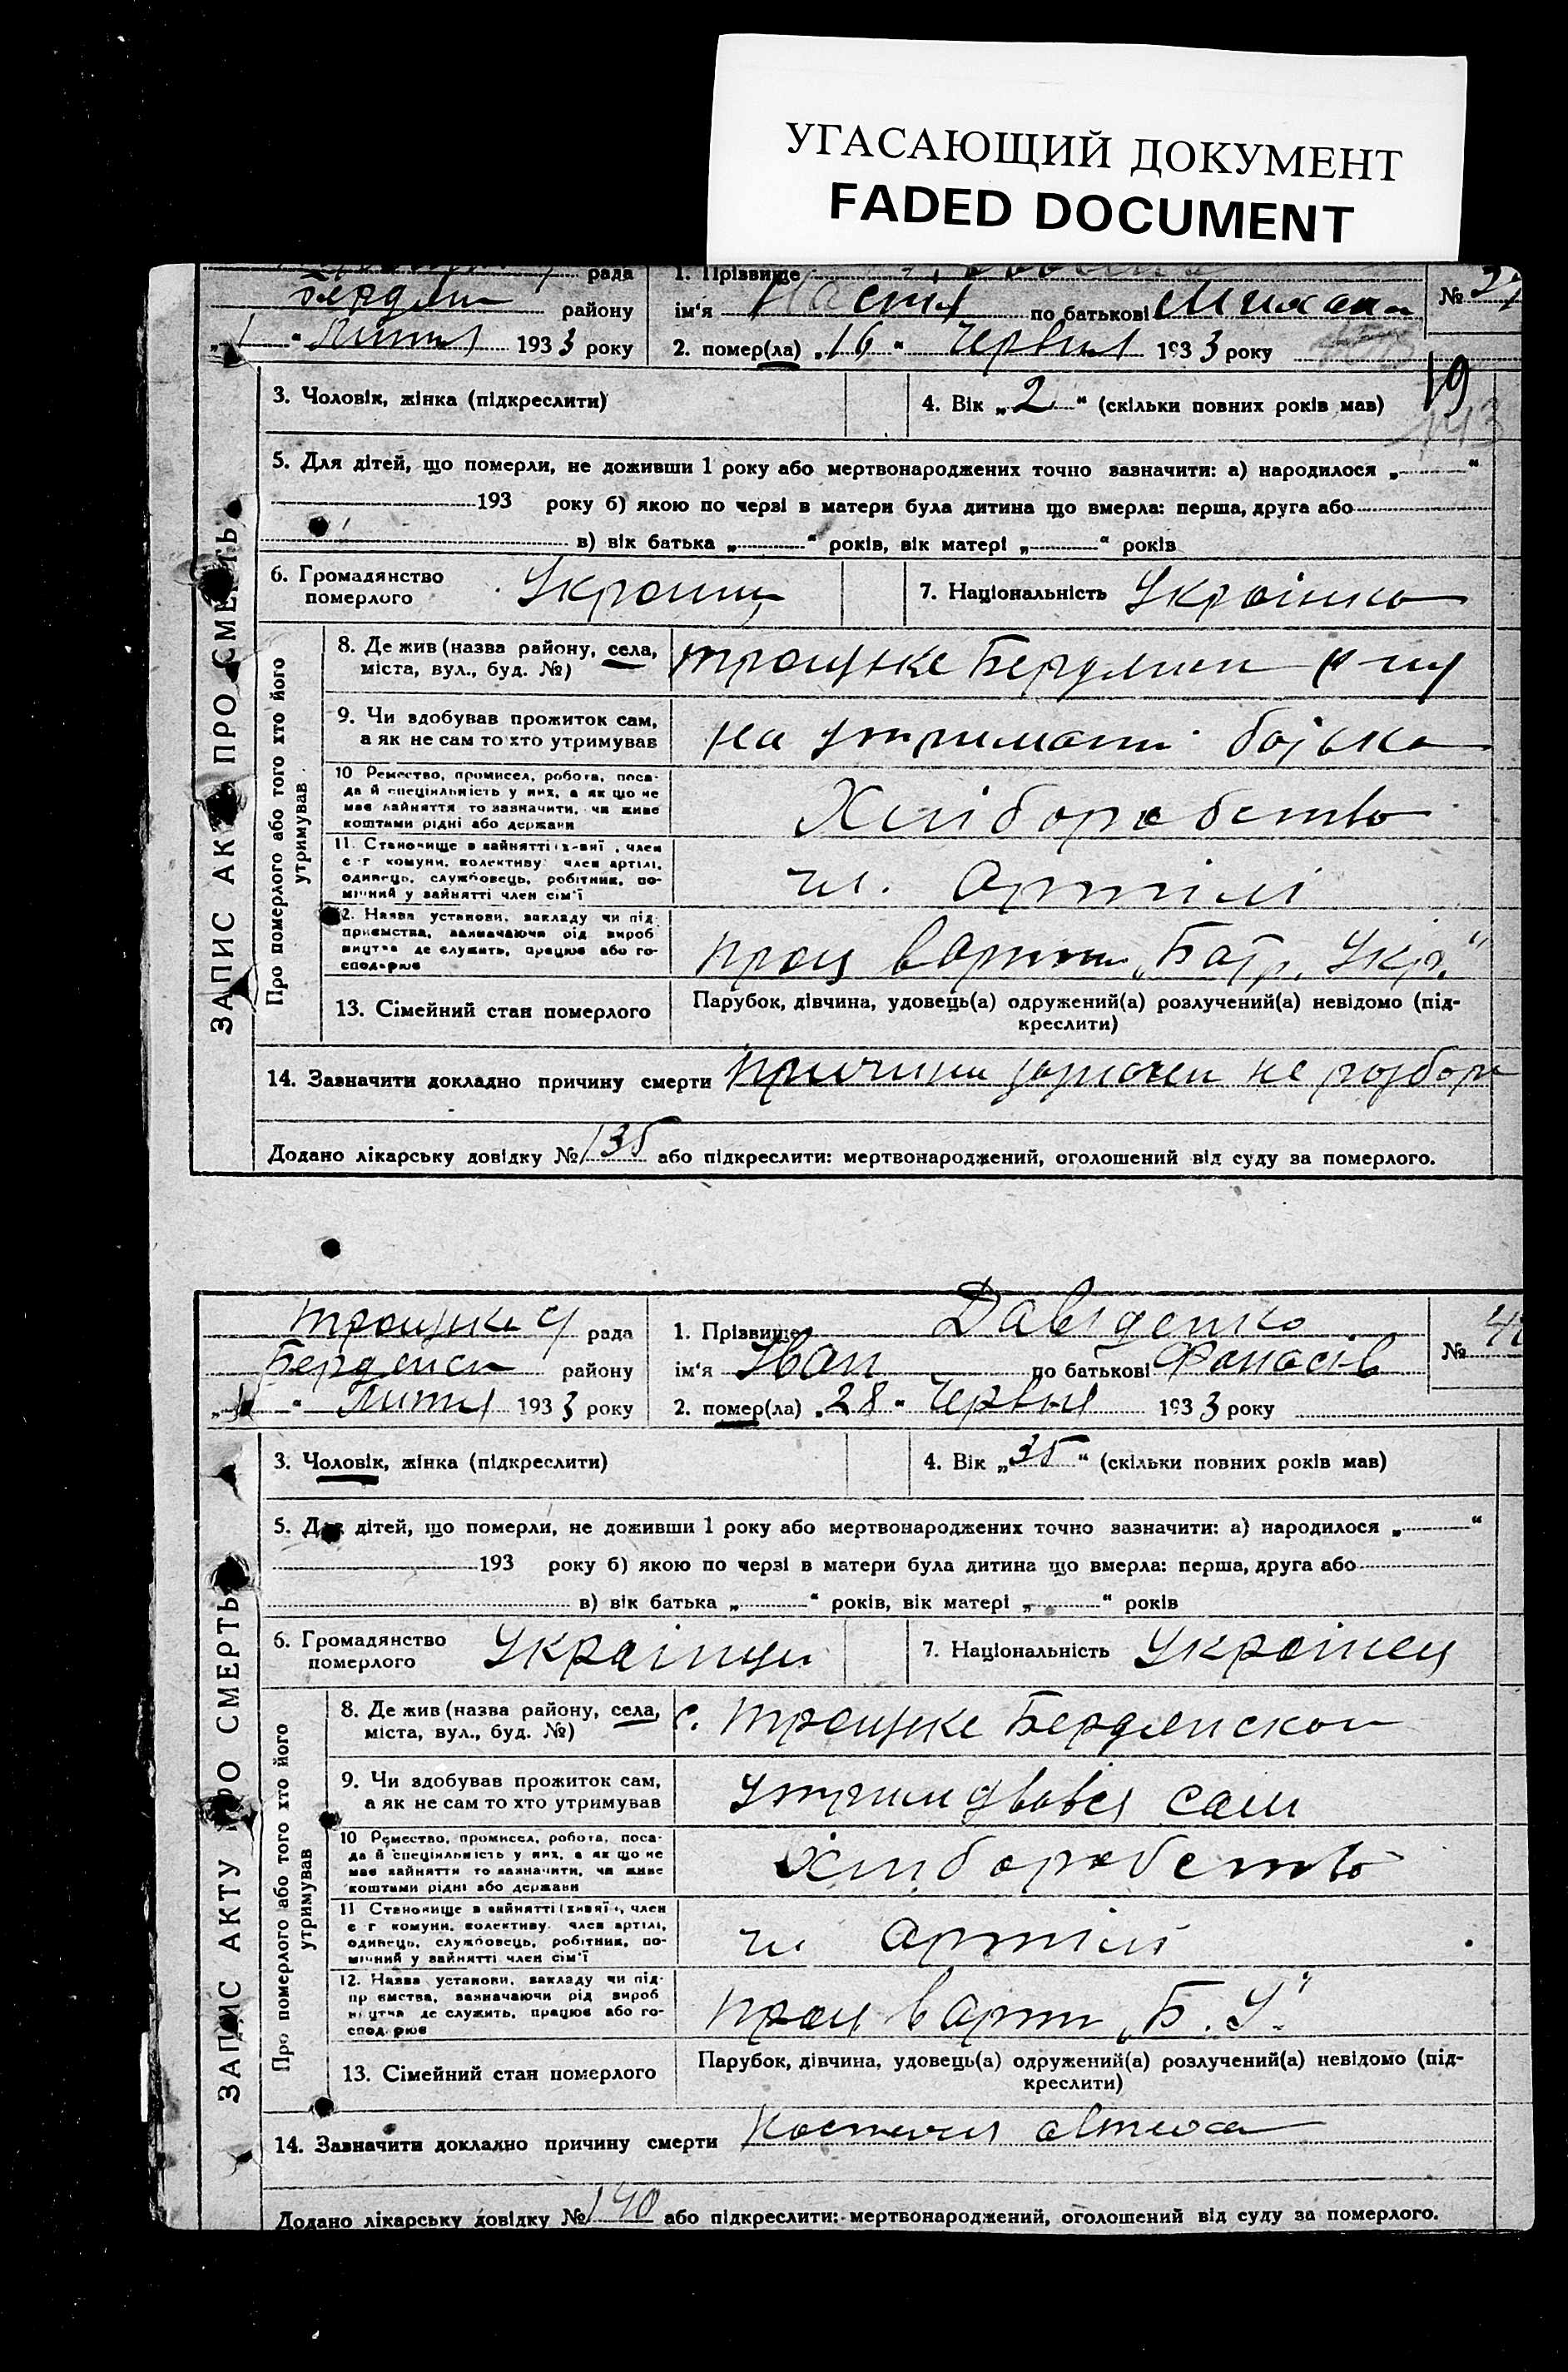 УГАСАЮЩИЙ ДОКУМЕНТ
FADED DOCUMENT
рада 1. Прізвище
Бердян району ім'я Настя по батькові Михайл №
„1“ Липня 1933 року 2. помер(ла) „16“ Червня 1933 року
19
3. Чоловік, жінка (підкреслити) 4. Вік „2“ (скільки повних років мав)
143
5. Для дітей, що померли, не доживши 1 року або мертвонароджених точно зазначити: а) народилося „ “
193 року б) якою по черзі в матери була дитина що вмерла: перша, друга або
в) вік батька „ “ років, вік матері „ “ років
ЗАПИС АКТУ ПРО СМЕРТЬ
6. Громадянство
померлого
7. Національність Українка
Про померлого або того хто його
утримував
8. Де жив (назва району, села,
міста, вул., буд. №)
троцьке Бердянск р-ну
9. Чи здобував прожиток сам,
а як не сам то хто утримував
на утриманні батька
10 Ремество, промисел, робота, поса-
да й спеціяльність у них, а як що не
має зайняття то зазначити, чи живе
коштами рідні або держави
Хліборобство
11. Становище в зайнятті , член
с-г комуни, колективу член артілі,
одинець, службовець, робітник, по-
мічний у зайнятті член сім'ї
чл. артілі
12. Назва установи, закладу чи під-
приємства, зазначаючи рід вироб
ництва де служить, працює або го-
сподарює
прац в арти „Батр. Укр.“
13. Сімейний стан померлого
Парубок, дівчина, удовець(а) одружений(а) розлучений(а) невідомо (під-
креслити)
14. Зазначити докладно причину смерти причини не розбор
Додано лікарську довідку № 135 або підкреслити: мертвонароджений, оголошений від суду за померлого.
троцька рада 1. Прізвище Давіденко
Бердянск району ім'я Іван по батькові Фанасів №
„1“ Липня 1933 року 2. помер(ла) „28“ Червня 1933 року
3. Чоловік, жінка (підкреслити) 4. Вік „35“ (скільки повних років мав)
5. Для дітей, що померли, не доживши 1 року або мертвонароджених точно зазначити: а) народилося „ “
193 року б) якою по черзі в матери була дитина що вмерла: перша, друга або
в) вік батька „ “ років, вік матері „ “ років
ЗАПИС АКТУ ПРО СМЕРТЬ
6. Громадянство
померлого
7. Національність Украінец
Про померлого або того хто його
утримував
8. Де жив (назва району, села,
міста, вул., буд. №)
с. троцьке Бердянской
9. Чи здобував прожиток сам,
а як не сам то хто утримував
утримувався сам
10 Ремество, промисел, робота, поса-
да й спеціяльність у них, а як що не
має зайняття то зазначити, чи живе
коштами рідні або держави
Хліборобство
11 Становище в зайнятті , член
с-г комуни, колективу член артілі,
одинець, службовець, робітник, по-
мічний у зайнятті член сім'ї
чл артілі
12. Назва установи, закладу чи під-
приємства, зазначаючи рід вироб
ництва де служить, працює або го-
сподарює
прац в арти „Б. У.“
13. Сімейний стан померлого
Парубок, дівчина, удовець(а) одружений(а) розлучений(а) невідомо (під-
креслити)
14. Зазначити докладно причину смерти
Додано лікарську довідку № 140 або підкреслити: мертвонароджений, оголошений від суду за померлого.